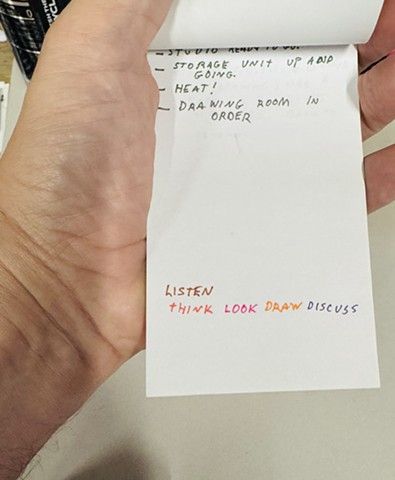 - STUDIO READY TO GO.
- STORAGE UNIT UP AND
GOING.
- HEAT!
- DRAWING ROOM IN
ORDER
LISTEN
THINK LOOK DRAW DISCUSS